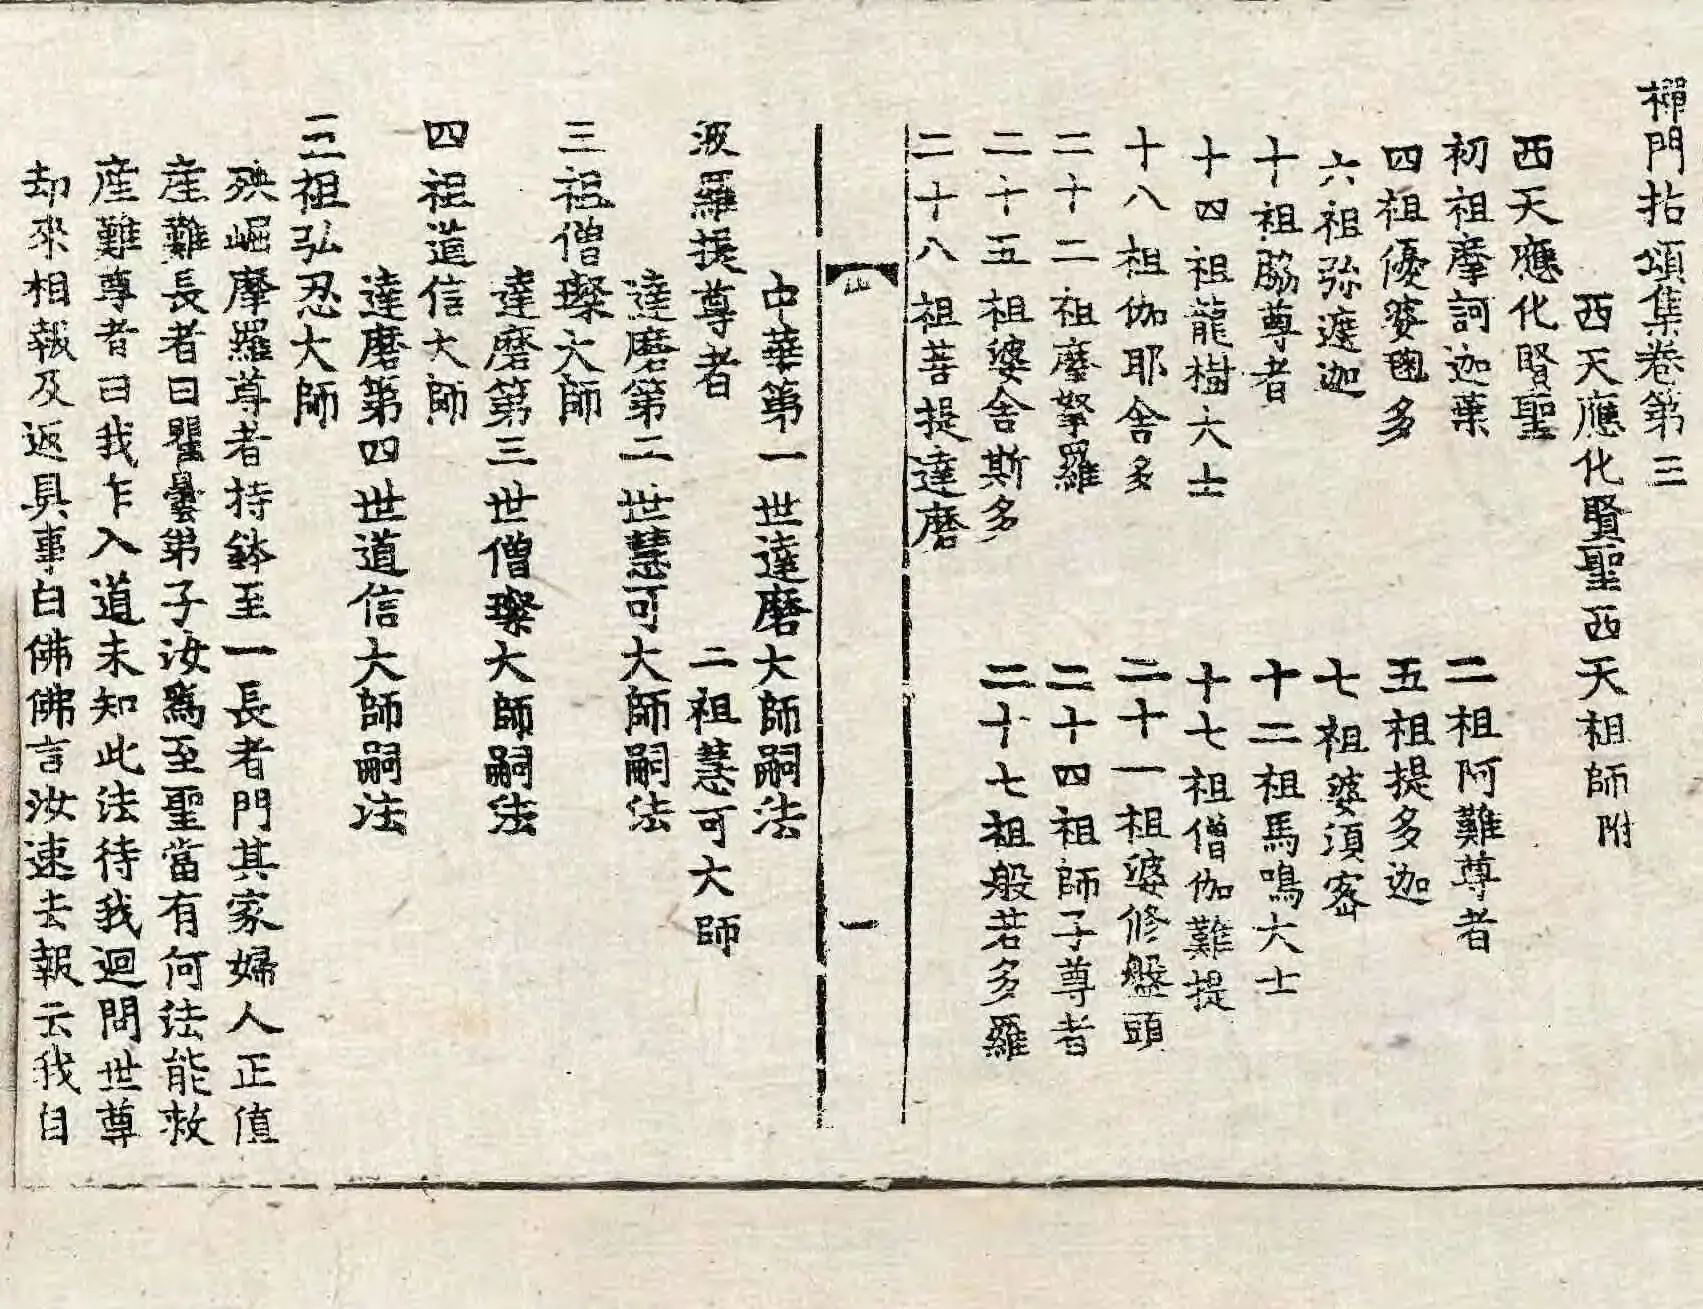 禪門拈頌集卷第三
西天應化賢聖西天祖師附
西天應化賢聖
初祖摩訶迦葉　二祖阿難尊者
四祖優婆毱多　五祖提多迦
六祖弥遮迦　七祖婆須密
十祖脇尊者　十二祖馬鳴大士
十四祖龍樹大士　十七祖僧伽難提
十八祖伽耶舍多　二十一祖婆修盤頭
二十二祖摩拏羅　二十四祖師子尊者
二十五祖婆舍斯多　二十七祖般若多羅
二十八祖菩提達磨
一
中華第一世達磨大師嗣法
波羅提尊者　二祖慧可大師
達磨第二世慧可大師嗣法
三祖僧璨大師
達磨第三世僧璨大師嗣法
四祖道信大師
達磨第四世道信大師嗣法
三祖弘忍大師
殃崛摩羅尊者持鉢至一長者門其家婦人正值
産難長者曰瞿曇弟子汝爲至聖當有何法能救
産難尊者曰我乍入道未知此法待我迴問世尊
却來相報及返具事白佛佛言汝速去報云我自